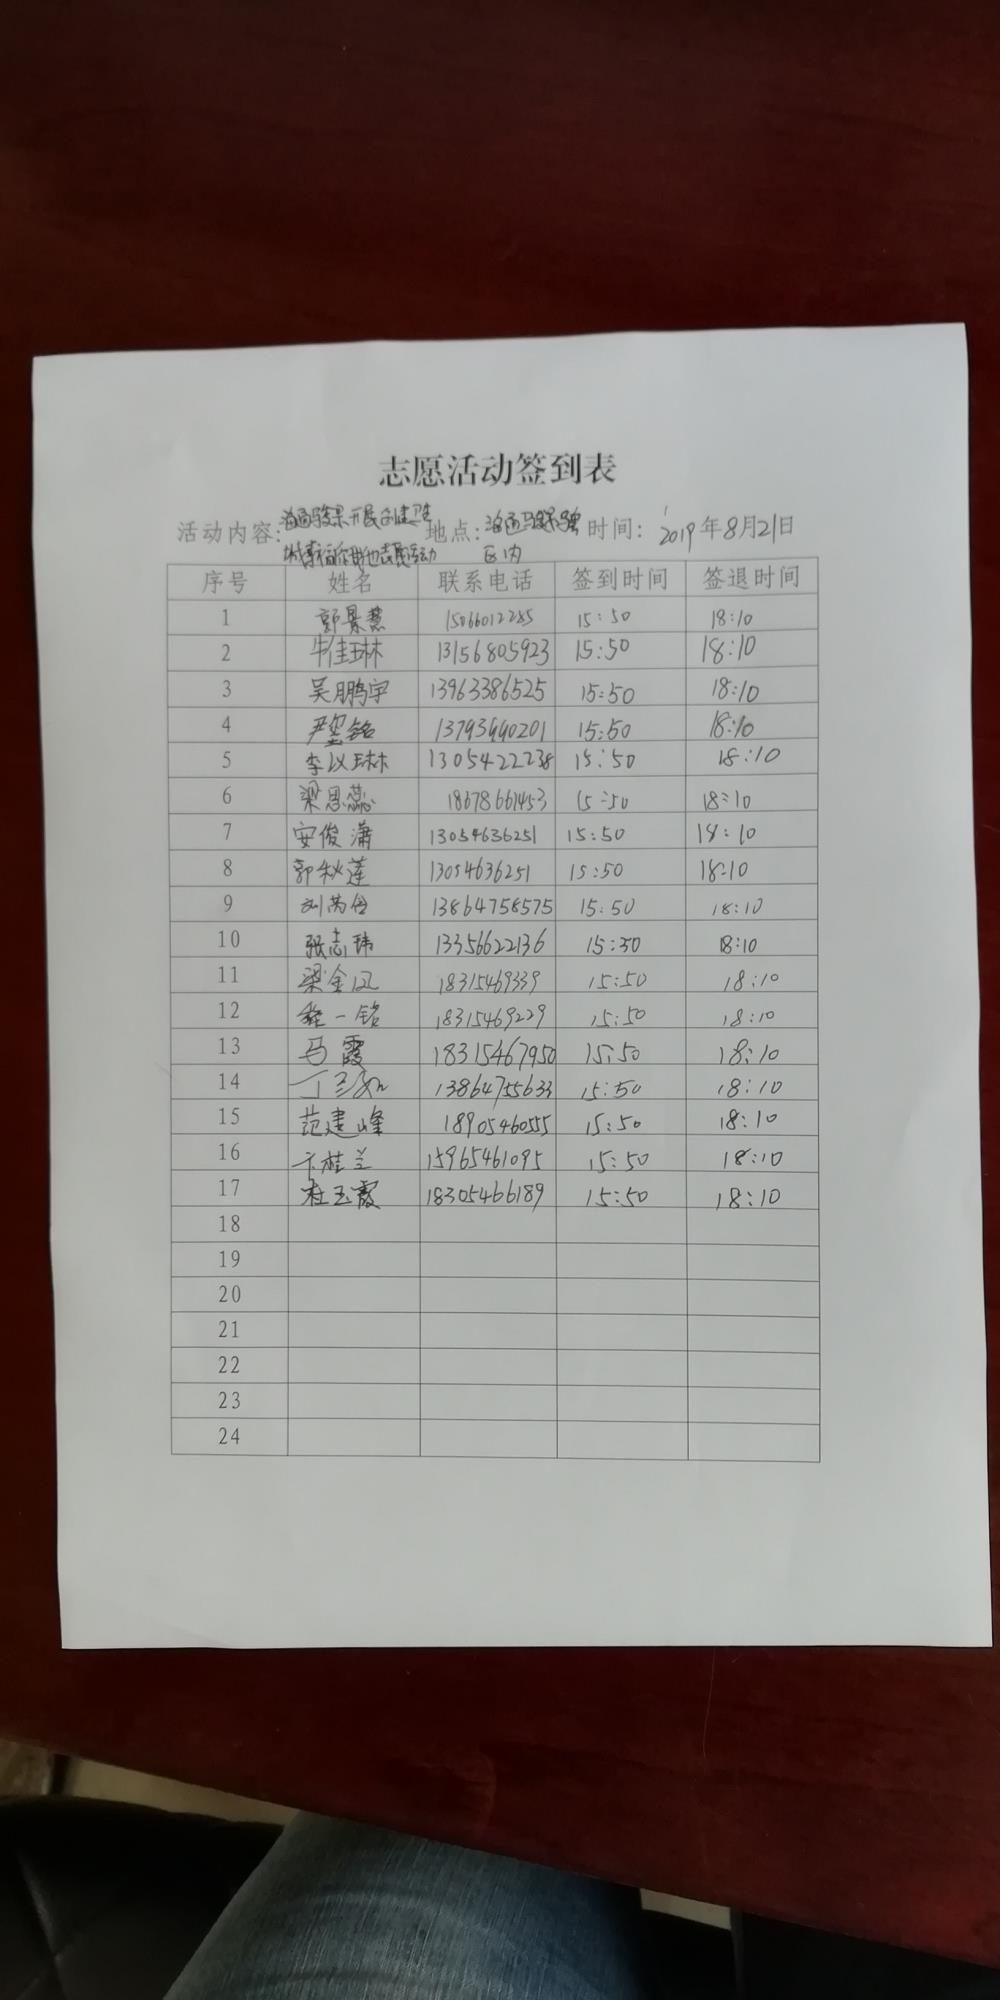 志愿活动签到表
活动内容: 地点: 时间: 2019年8月21日
区内
序号 姓名 联系电话 签到时间 签退时间
1 郭景慧 15066012285 15:50 18:10
2 牛佳琳 13156805923 15:50 18:10
3 吴鹏宇 13963386525 15:50 18:10
4 13793440201 15:50 18:10
5 李以琳 13054222238 15:50 18:10
6 梁思蕊 18678661453 15:50 18:10
7 安俊潇 13054636251 15:50 18:10
8 郭秋莲 13054636251 15:50 18:10
9 13864758575 15:50 18:10
10 张志玮 13356622136 15:30 18:10
11 梁金 18315469339 15:50 18:10
12 一铭 18315469229 15:50 18:10
13 马霞 18315467950 15:50 18:10
14 13864755633 15:50 18:10
15 范建峰 18905460555 15:50 18:10
16 卞桂兰 15965461095 15:50 18:10
17 杜玉霞 18305466189 15:50 18:10
18
19
20
21
22
23
24